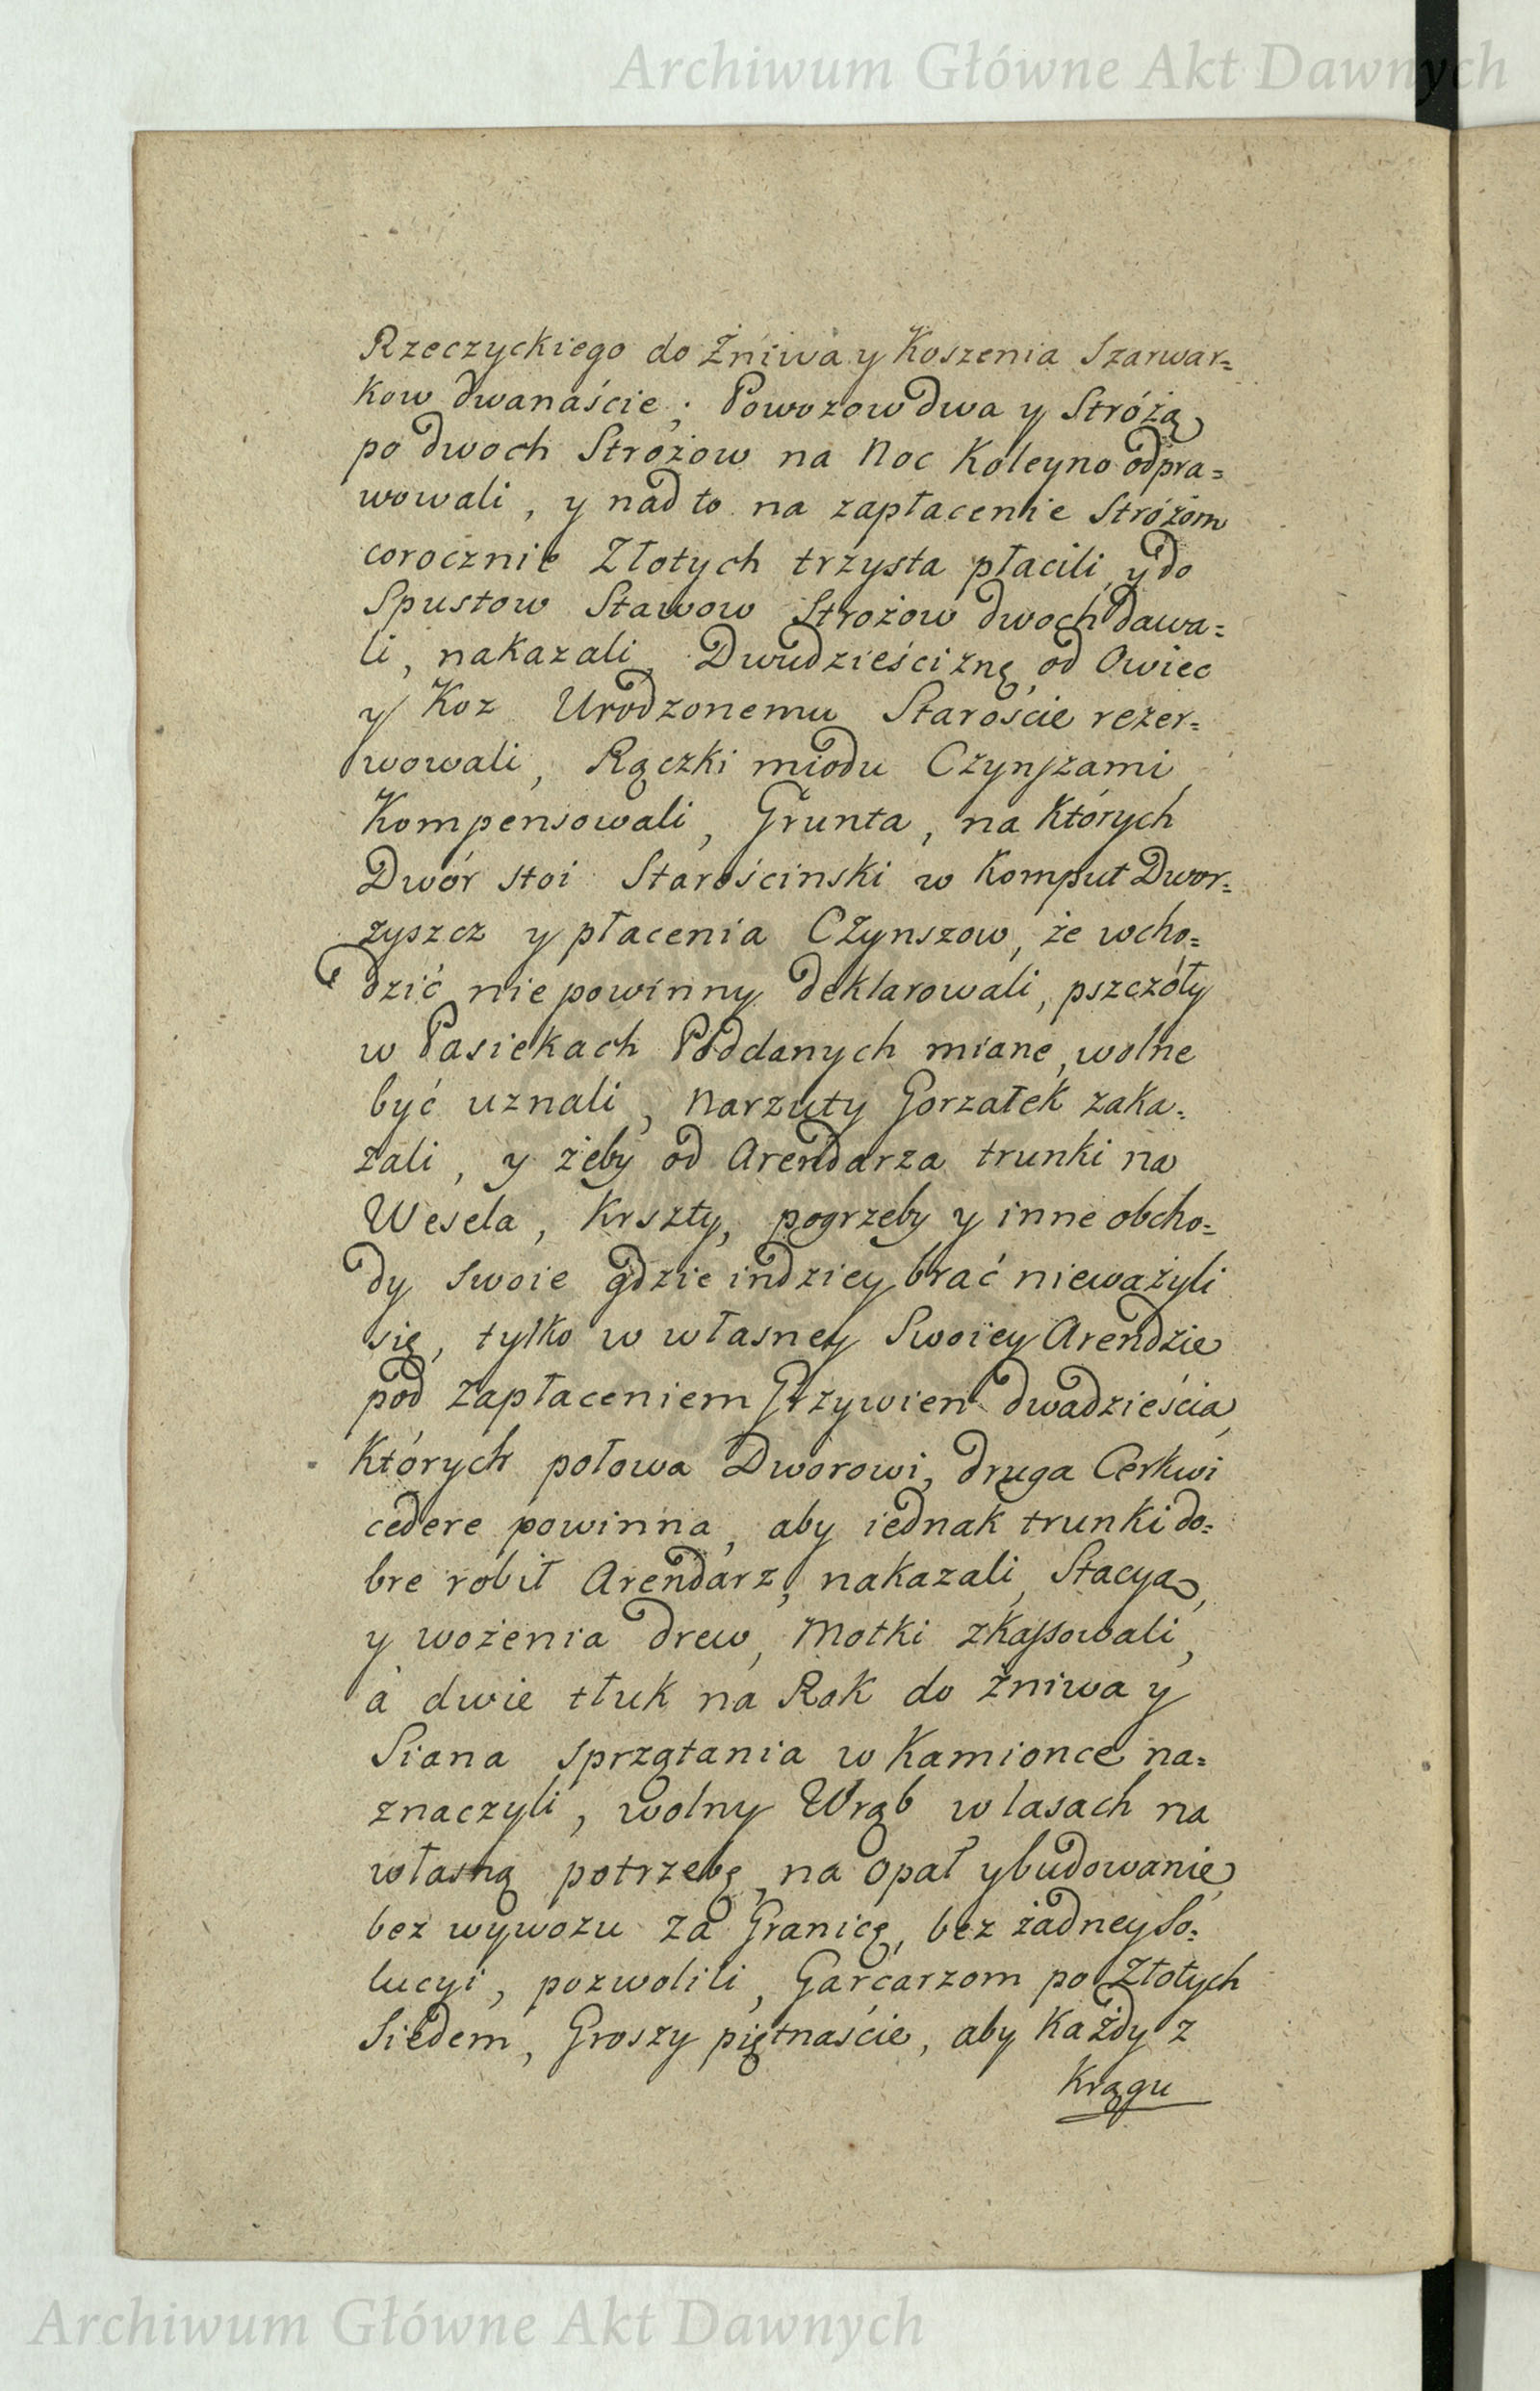 Archiwum Główne Akt Dawnych
Rzeczyckiego do Żniwa y Koszenia Szarwar=
kow dwanaście; Powozow dwa y Stróżą
po dwoch Stróżow na Noc Koleyno odpra=
wowali, y nad to na zapłacenie Stróżom
corocznie Złotych trzysta płacili, y do
Spustow Stawow Strożow dwoch dawa=
li, nakazali, Dwudzieściznę od Owiec
y Koz Urodzonemu Staroście rezer=
wowali, Rączki miodu Czynszami
Kompensowali, Grunta, na Których
Dwór stoi Starościnski w Komput Dwor=
zyszcz y płacenia Czynszow, że wcho=
dzić nie powinny deklarowali, pszczóły
w Pasiekach Poddanych miane, wolne
być uznali, Narzuty Gorzałek zaka=
zali, y żeby od Arendarza trunki na
Wesela, Krszty, pogrzeby y inne obcho=
dy swoie gdzie indziey brać nieważyli
się, tylko w własney Swoiey Arendzie
pod zapłaceniem Grzywien dwadzieścia,
Których połowa Dworowi, druga Cerkwi
cedere powinna, aby iednak trunki do=
bre robił Arendarz, nakazali, Stacya,
y wożenia drew, Motki zkassowali,
a dwie tłuk na Rok do żniwa y
Siana sprzątania w Kamionce na=
znaczyli, wolny Wrąb w lasach na
własną potrzebę, na opał y budowanie,
bez wywozu za Granicę, bez żadney So=
lucyi, pozwolili, Garcarzom po Złotych
Siedem, Groszy piętnaście, aby Każdy z
Krągu
Archiwum Główne Akt Dawnych